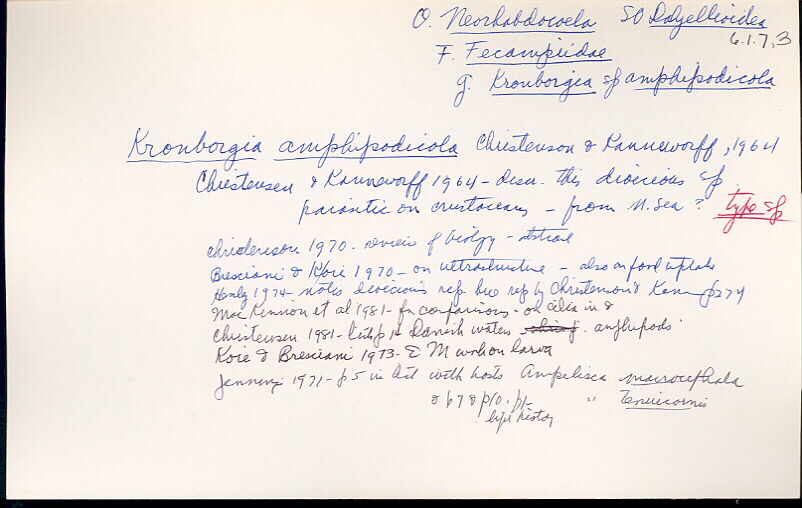 O. Neorhabdocoela SO Dalyellioidea
6.1.7.3
F. Fecampiidae
g. Kronborgia sp amphipodicola
Kronborgia amphipodicola Christenson & Kannevorff, 1964
Christensen & Kannevorff 1964 - descr. this dioecious sp
parasitic on crustaceans - from N. Sea? type sp
Christenson 1970 - review of biology -
Bresciani & Koie 1970 - on ultrastructure - also on food uptake
1974 - notes dioecious rep by Christenson & Kann p274
MacKinnon et al 1981 - for comparison - on cilia in &
Christensen 1981 - Danish waters amphipods
Koie & Bresciani 1973 - E M work on larva
Jennings 1971 - p5 in list with hosts Ampelisca macrocephala
& p7 & p10. p1- " tenuicornis
life history